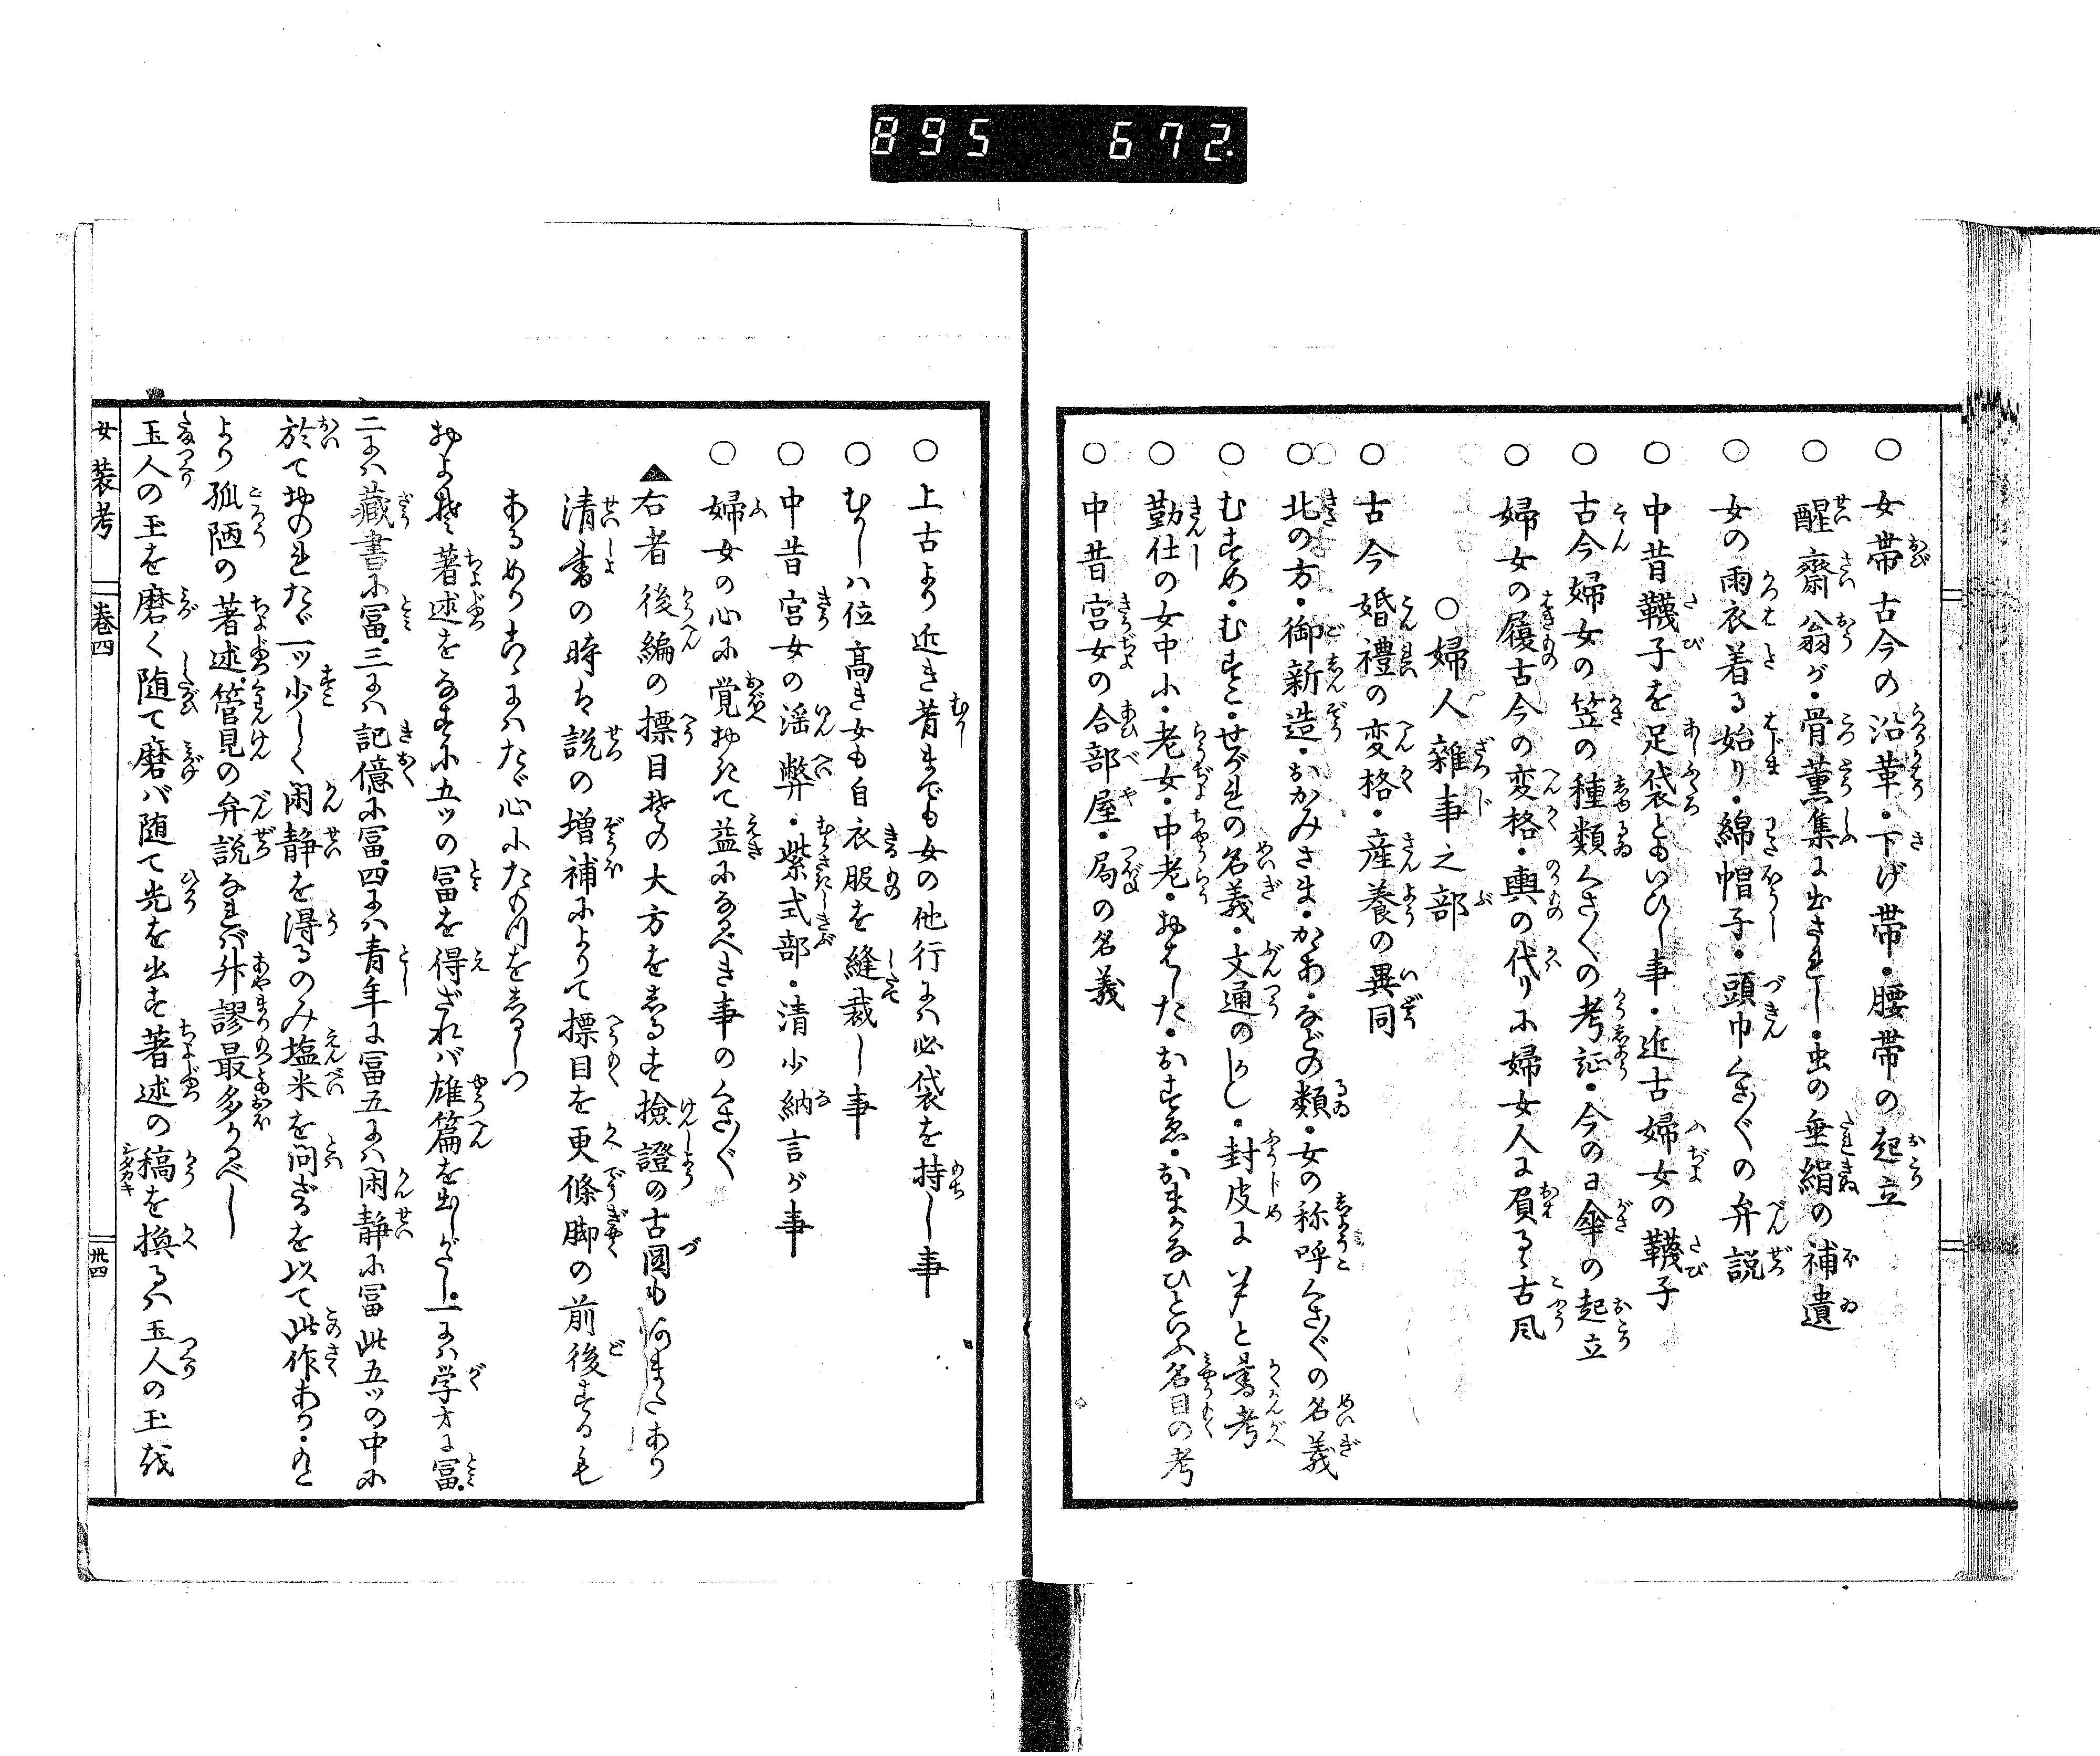 895 672
○女帯古今の沿革・下げ帯・腰帯の起立
○醒齋翁が・骨董集に出されし・虫の垂絹の補遺
○女の雨衣着る始り・綿帽子・頭巾くさ〴〵の弁説
○中昔韈子を足袋ともいひし事・近古婦女の韈子
○古今婦女の笠の種類くさ〴〵の考証・今の日傘の起立
○婦女の履古今の変格・輿の代りに婦女人に負るゝ古風
○婦人雜事之部
○古今婚禮の変格・産養の異同
○北の方・御新造・おかみさま・かゝあ・などの類・女の称呼くさ〴〵の名義
○むすめ・むすこ・せがれの名義・文通の・封皮に〆と書考
○勤仕の女中小・老女・中老・おはした・おすゑ・おまかなひといふ名目の考
○中昔宮女の合部屋・局の名義
○上古より近き昔までも女の他行には必袋を持し事
○むかしハ位高き女も自衣服を縫裁し事
○中昔宮女の淫弊・紫式部・清少納言が事
○婦女の心に覚おきて益になるべき事のくさ〴〵
▲右者後編の標目其の大方をしるす撿證の古圖もあまたあり
清書の時は説の増補によりて標目を更條脚の前後するも
あるめりこゝにハたゞ心にたもつをしるしつ
およそ著述をなすに五ツの冨を得ざれバ雄篇を出しがたし・一にハ学才に冨・
二にハ藏書に冨・三にハ記憶に冨・四にハ青年に冨五にハ閑静に冨此五ツの中に
於ておのれたゞ一ツ少しく閑静を得るのみ塩米を問ざるを以て此作あり・
より孤陋の著述・管見の弁説なれバ舛謬最多かるべし
玉人の玉を磨く随て磨バ随て光を出す著述の稿を換るハ玉人の玉を
女装考 巻四 卅四